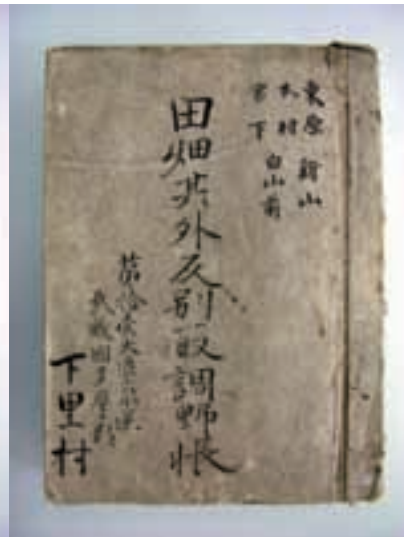 東原
本村
宮下 白山前
田畑其外反別取調野帳
武蔵国多摩郡
下里村